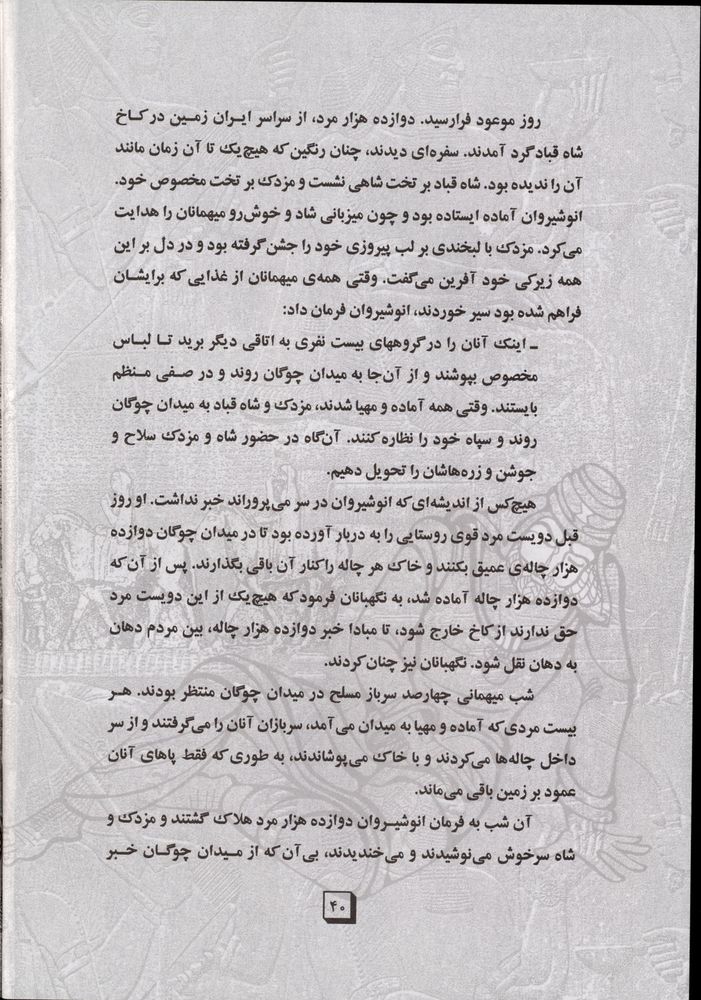 روز موعود فرارسید. دوازده هزار مرد، از سراسر ایران زمین در کاخ
شاه قباد گرد آمدند. سفره‌ای دیدند، چنان رنگین که هیچ یک تا آن زمان مانند
آن را ندیده بود. شاه قباد بر تخت شاهی نشست و مزدک بر تخت مخصوص خود.
انوشیروان آماده ایستاده بود و چون میزبانی شاد و خوش‌رو میهمانان را هدایت
می‌کرد. مزدک با لبخندی بر لب پیروزی خود را جشن گرفته بود و در دل بر این
همه زیرکی خود آفرین می‌گفت. وقتی همه‌ی میهمانان از غذایی که برایشان
فراهم شده بود سیر خوردند، انوشیروان فرمان داد:
ـ اینک آنان را در گروههای بیست نفری به اتاقی دیگر برید تا لباس
مخصوص بپوشند و از آن‌جا به میدان چوگان روند و در صفی منظم
بایستند. وقتی همه آماده و مهیا شدند، مزدک و شاه قباد به میدان چوگان
روند و سپاه خود را نظاره کنند. آن‌گاه در حضور شاه و مزدک سلاح و
جوشن و زره‌هاشان را تحویل دهیم.
هیچ‌کس از اندیشه‌ای که انوشیروان در سر می‌پروراند خبر نداشت. او روز
قبل دویست مرد قوی روستایی را به دربار آورده بود تا در میدان چوگان دوازده
هزار چاله‌ی عمیق بکنند و خاک هر چاله را کنار آن باقی بگذارند. پس از آن که
دوازده هزار چاله آماده شد، به نگهبانان فرمود که هیچ یک از این دویست مرد
حق ندارند از کاخ خارج شود، تا مبادا خبر دوازده هزار چاله، بین مردم دهان
به دهان نقل شود. نگهبانان نیز چنان کردند.
شب میهمانی چهارصد سرباز مسلح در میدان چوگان منتظر بودند. هر
بیست مردی که آماده و مهیا به میدان می‌آمد، سربازان آنان را می‌گرفتند و از سر
داخل چاله‌ها می‌کردند و با خاک می‌پوشاندند، به طوری که فقط پاهای آنان
عمود بر زمین باقی می‌ماند.
آن شب به فرمان انوشیروان دوازده هزار مرد هلاک گشتند و مزدک و
شاه سرخوش می‌نوشیدند و می‌خندیدند، بی‌آن که از میدان چوگان خبر
۴۰